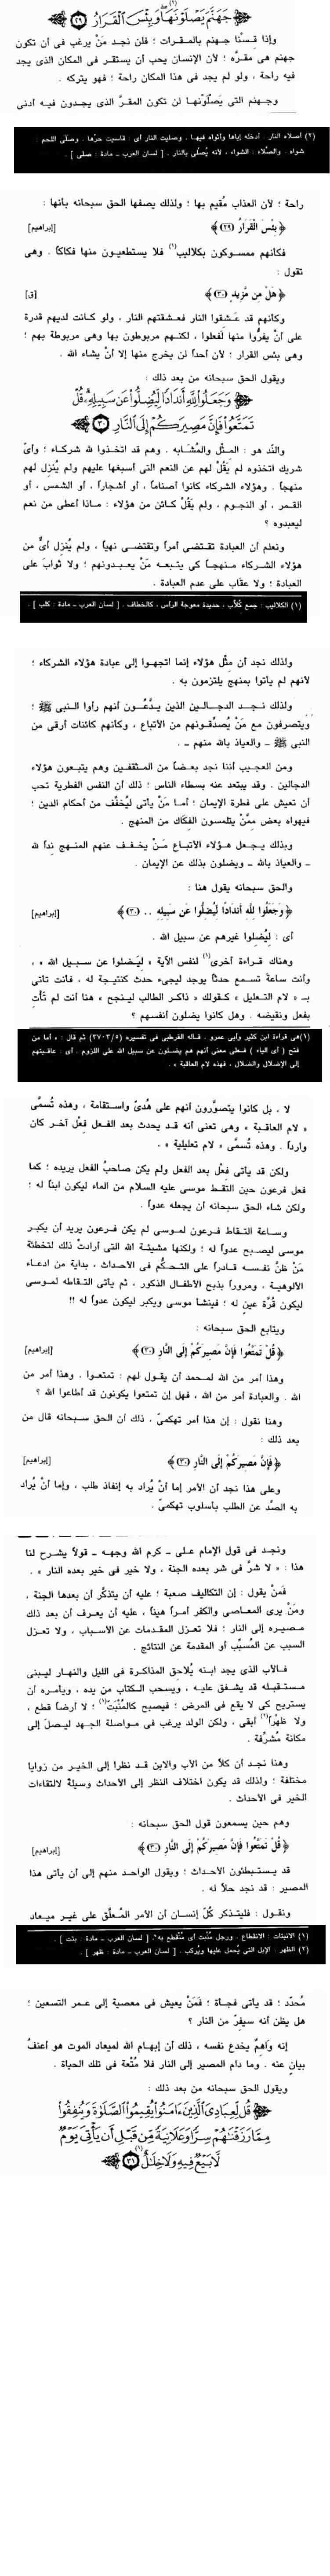 جَهَنَّمَ يَصْلَوْنَهَا وَبِئْسَ الْقَرَارُ (٢٩)
وإذا قِسْنا جهنم بالمقرات ؛ فلن نجد مَنْ يرغب فى أن تكون
جهنم هى مقرّه ؛ لأن الإنسان يحب أن يستقر فى المكان الذى يجد
فيه راحة ، ولو لم يجد فى هذا المكان راحة ؛ فهو يتركه .
وجهنم التى يَصْلَوْنها لن تكون المقرّ الذى يجدون فيه أدنى
(٢) أصلاه النار . أدخله إياها وأثواه فيها . وصليت النار أى : قاسيت حرّها . وصلّى اللحم :
شواه . والصلّاء : الشواء ، لأنه يُصلَى بالنار . [ لسان العرب - مادة : صلى ] .
راحة ؛ لأن العذاب مُقيم بها ؛ ولذلك يصفها الحق سبحانه بأنها :
﴿ بِئْسَ الْقَرَارُ (٢٩) ﴾ [إبراهيم]
فكأنهم ممسوكون بكلاليب(١) فلا يستطيعون منها فكاكاً . وهى
تقول :
﴿ هَلْ مِن مَّزِيدٍ (٣٠) ﴾ [ق]
وكأنهم قد عَشقوا النار فعشقتهم النار ، ولو كانت لديهم قدرة
على أنْ يفرُّوا منها لفعلوا ، لكنهم مربوطون بها وهى مربوطة بهم ؛
وهى بئس القرار ؛ لأن أحداً لن يخرج منها إلا أنْ يشاء الله .
ويقول الحق سبحانه من بعد ذلك :
وَجَعَلُوا لِلَّهِ أَندَادًا لِّيُضِلُّوا عَن سَبِيلِهِ قُلْ
تَمَتَّعُوا فَإِنَّ مَصِيرَكُمْ إِلَى النَّارِ (٣٠)
والند هو : المثْل والمُشَابه . وهم قد اتخذوا لله شركاء ؛ وأىّ
شريك اتخذوه لم يَقُلْ لهم عن النعم التى أسبغها عليهم ولم يُنزل لهم
منهجاً . وهؤلاء الشركاء كانوا أصناماً ، أو أشجاراً ، أو الشمس ، أو
القمر ، أو النجوم ، ولم يَقُلْ كائن من هؤلاء : ماذا أعطى من نعم
ليعبدوه ؟
ونعلم أن العبادة تقتضى أمراً وتقتضى نهياً ، ولم يُنزِل أىٌّ من
هؤلاء الشركاء منهجاً كى يتبعه مَنْ يعبدونهم ؛ ولا ثوابَ على
العبادة ؛ ولا عقاب على عدم العبادة .
(١) الكلاليب : جمع كُلَّاب ، حديدة معوجة الرأس ، كالخطاف . [ لسان العرب - مادة : كلب ] .
ولذلك نجد أن مثْل هؤلاء إنما اتجهوا إلى عبادة هؤلاء الشركاء ؛
لأنهم لم يأتوا بمنهج يلتزمون به .
ولذلك نجد الدجالين الذين يدَّعُون أنهم رأوا النبى ﷺ ؛
ويتصرفون مع مَنْ يُصدِّقونهم من الأتباع ، وكأنهم كائنات أرقى من
النبى ﷺ - والعياذ بالله منهم - .
ومن العجيب أننا نجد بعضاً من المثقفين وهم يتبعون هؤلاء
الدجالين . وقد يبتعد عنه بسطاء الناس ؛ ذلك أن النفس الفطرية تحب
أن تعيش على فطرة الإيمان ؛ أما مَنْ يأتى ليُخفِّف من أحكام الدين ؛
فيهواه بعض ممَّنْ يتلمسون الفكَاك من المنهج .
وبذلك يجعل هؤلاء الأتباع مَنْ يخفف عنهم المنهج نِداً لله
- والعياذ بالله - ويضلون بذلك عن الإيمان .
والحق سبحانه يقول هنا :
﴿ وَجَعَلُوا لِلَّهِ أَندَادًا لِّيُضِلُّوا عَن سَبِيلِهِ .. (٣٠) ﴾ [إبراهيم]
أى : ليُضلوا غيرهم عن سبيل الله .
وهناك قراءة أخرى(١) لنفس الآية « لِيَضلوا عن سبيل الله » ،
وأنت ساعةَ تسمع حدثاً يوجد ليجىء حدث كنتيجة له ، فأنت تأتى
بـ « لام التعليل » كقولك « ذاكر الطالب لينجح » هنا أنت لم تَأْت
بفعل ونقيضه . وهل كانوا يضلون أنفسهم ؟
(١) هى قراءة ابن كثير وأبى عمرو . قاله القرطبى فى تفسيره (٣٧٠٣/٥) ثم قال : « أما من
فتح ( أى الياء ) فعلى معنى أنهم هم يضلون عن سبيل الله على اللزوم . أى : عاقبتهم
إلى الإضلال والضلال ، فهذه لام العاقبة » .
لا ، بل كانوا يتصوَّرون أنهم على هُدىً واستقامة ، وهذه تُسمَّى
« لام العاقبة » وهى تعنى أنه قد يحدث بعد الفعل فِعلٌ آخر كان
وارداً . وهذه تُسمَّى « لام تعليلية » .
ولكن قد يأتى فعْل بعد الفعل ولم يكن صاحبُ الفعل يريده ؛ كما
فعل فرعون حين التقط موسى عليه السلام من الماء ليكون ابناً له ؛
ولكن شاء الحق سبحانه أن يجعله عدواً .
وساعة التقاط فرعون لموسى لم يكن فرعون يريد أن يكبر
موسى ليصبح عدواً له ؛ ولكنها مشيئة الله التى أرادتْ ذلك لتخطئة
مَنْ ظنَّ نفسه قادراً على التحكُّم فى الأحداث ، بداية من ادعاء
الألوهية ، ومروراً بذبح الأطفال الذكور ، ثم يأتى التقاطه لموسى
ليكون قُرَّة عين له ؛ فينشأ موسى ويكبر ليكون عدواً له !!
ويتابع الحق سبحانه :
﴿ قُلْ تَمَتَّعُوا فَإِنَّ مَصِيرَكُمْ إِلَى النَّارِ (٣٠) ﴾ [إبراهيم]
وهذا أمر من الله لمحمد أن يقول لهم : تمتعوا . وهذا أمر من
الله . والعبادة أمر من الله ، فهل إن تمتعوا يكونون قد أطاعوا الله ؟
وهنا نقول : إن هذا أمر تهكمىّ ، ذلك أن الحق سبحانه قال من
بعد ذلك :
﴿ فَإِنَّ مَصِيرَكُمْ إِلَى النَّارِ (٣٠) ﴾ [إبراهيم]
وعلى هذا نجد أن الأمر إما أنْ يُراد به إنفاذ طلب ، وإما أنْ يُراد
به الصَّد عن الطلب بأسلوب تهكمىّ .
ونجد فى قول الإمام على - كرم الله وجهه - قولاً يشرح لنا
هذا : « لا شرَّ فى شر بعده الجنة ، ولا خير فى خير بعده النار » .
فمَنْ يقول : إن التكاليف صعبة ؛ عليه أن يتذكَّر أن بعدها الجنة ،
ومَنْ يرى المعاصى والكفر أمراً هيناً ، عليه أن يعرف أن بعد ذلك
مصيره إلى النار ؛ فلا تعزل المقدمات عن الأسباب ، ولا تعزل
السبب عن المُسبِّب أو المقدمة عن النتائج .
فالأب الذى يجد ابنه يُلاحق المذاكرة فى الليل والنهار ليبنى
مستقبله قد يشفق عليه ، ويسحب الكتاب من يده ، ويأمره أن
يستريح كى لا يقع فى المرض ؛ فيصبح كالمُنْبَتّ(١) ؛ لا أرضاً قطع ،
ولا ظَهْراً(٢) أبقى ، ولكن الولد يرغب فى مواصلة الجهد ليصلَ إلى
مكانة مُشرِّفة .
وهنا نجد أن كلاً من الأب والابن قد نظرا إلى الخير من زوايا
مختلفة ؛ ولذلك قد يكون اختلاف النظر إلى الأحداث وسيلةً لالتقاءات
الخير فى الأحداث .
وهم حين يسمعون قول الحق سبحانه :
﴿ قُلْ تَمَتَّعُوا فَإِنَّ مَصِيرَكُمْ إِلَى النَّارِ (٣٠) ﴾ [إبراهيم]
قد يستبطئون الأحداث ؛ ويقول الواحد منهم إلى أن يأتى هذا
المصير : قد نجد حلاً له .
ونقول : فليتذكر كُلّ إنسان أن الأمر المُعلَّق على غير ميعاد
(١) الانبتات : الانقطاع . ورجل مُنْبَت أى مُنْقطع به . [ لسان العرب - مادة : بتت ] .
(٢) الظهر : الإبل التى يُحمل عليها ويُركب . [ لسان العرب - مادة : ظهر ] .
مُحدَّد ؛ قد يأتى فجأة ؛ فمَنْ يعيش فى معصية إلى عمر التسعين ؛
هل يظن أنه سيفرّ من النار ؟
إنه وَاهمٌ يخدع نفسه ، ذلك أن إبهام الله لميعاد الموت هو أعنفُ
بيان عنه . وما دام المصير إلى النار فلا مُتْعة فى تلك الحياة .
ويقول الحق سبحانه من بعد ذلك :
قُل لِّعِبَادِيَ الَّذِينَ ءَامَنُوا يُقِيمُوا الصَّلَوٰةَ وَيُنفِقُوا
مِمَّا رَزَقْنَٰهُمْ سِرًّا وَعَلَانِيَةً مِّن قَبْلِ أَن يَأْتِيَ يَوْمٌ
لَّا بَيْعٌ فِيهِ وَلَا خِلَٰلٌ(١) (٣١)